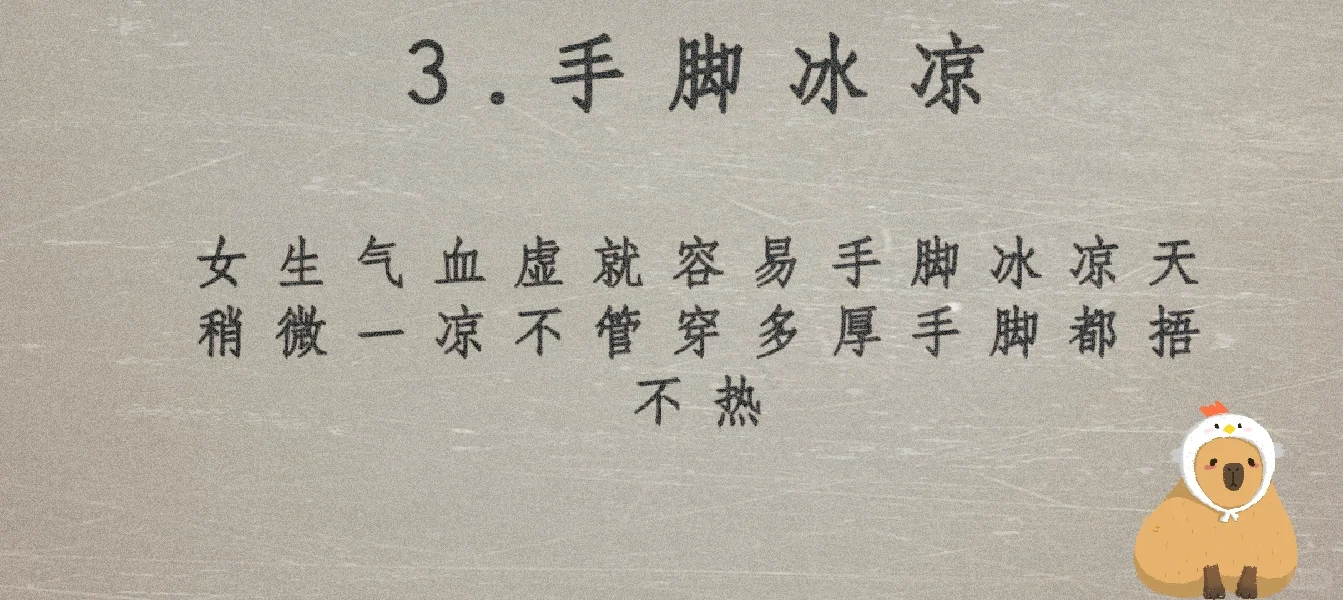 3.手脚冰凉
女生气血虚就容易手脚冰凉天
稍微一凉不管穿多厚手脚都捂
不热